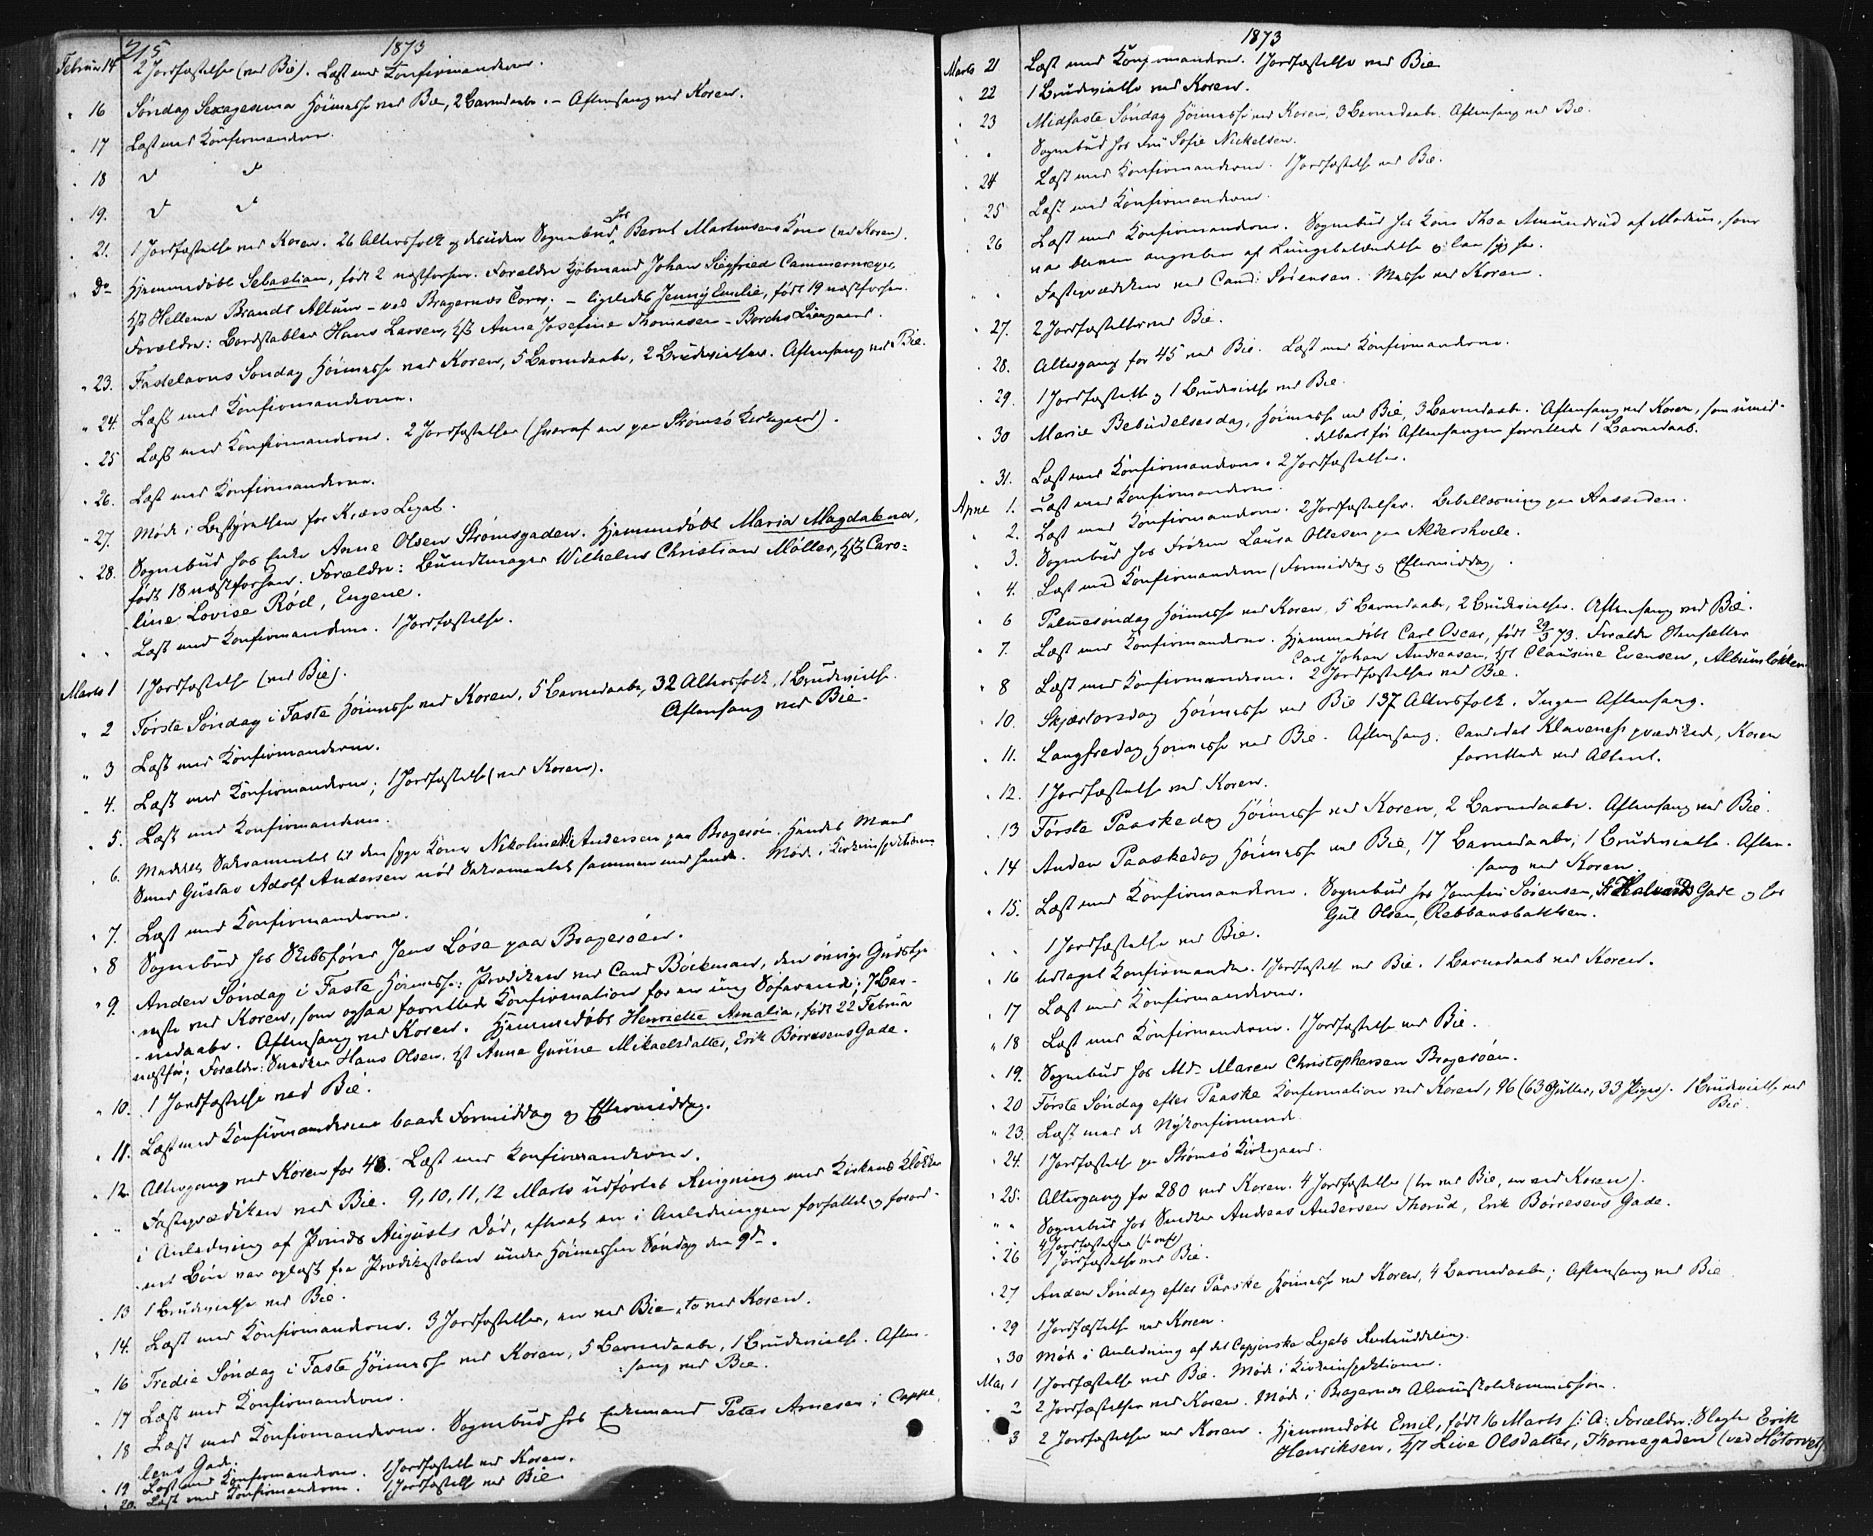 215
1873
Februar 14 2 Jordfæstelser (ved Bie). Læst med Konfirmanderne.
" 16 Søndag Sexagesima Höimesse ved Bie, 2 Barnedaab. – Aftensang ved Koren.
" 17 Læst med Konfirmanderne.
" 18 d d
" 19. d d
" 21. 1 Jordfæstelse ved Koren. 26 Altersfolk og desuden Sognebud hos Bernt Martinsens Kone (ved Koren).
" Do Hjemmedøbt Sebastian, født 2 næstforhen. Forældre Kjöbmand Johan Siegfried Cammermeyer,
Hst Hellena Brandt Altum – ved Bragernæs Torv; – ligeledes Jenny Emilie, født 19 næstforhen.
Forældre: Bordstabler Hans Larsen, Hst Anna Josefine Thomasen – Borchs Lüngaard.
" 23. Fastelavns Søndag Höimesse ved Koren, 5 Barnedaab, 2 Brudevielser. Aftensang ved Bie.
" 24. Læst med Konfirmanderne.
" 25 Læst med Konfirmanderne. 2 Jordfæstelser (hvoraf en paa Strømsö Kirkegaard).
" 26. Læst med Konfirmanderne.
" 27. Möde i Bestyrelsen for Kiærs Legat.
" 28. Sognebud hos Enke Anne Olsen Strømsgaden. Hjemmedøbt Maria Magdalena,
født 18 næstforhen. Forældre: Bundtmager Wilhelm Christian Møller, Hst Caro-
line Lovise Röd, Engene.
" " Læst med Konfirmanderne. 1 Jordfæstelse.
Marts 1 1 Jordfæstelse (ved Bie).
" 2 Förste Søndag i Faste Höimesse ved Koren, 5 Barnedaab, 32 Altersfolk, 1 Brudevielse.
Aftensang ved Bie.
" 3 Læst med Konfirmanderne.
" 4. Læst med Konfirmanderne; 1 Jordfæstelse (ved Koren).
" 5. Læst med Konfirmanderne.
" 6. Meddelt Sakramentet til den syge Kone Nikoline Andersen paa Bragerøen. Hendes Mand
Smed Gustav Adolf Andersen nöd Sakramentet sammen med hende. Möde i Kirkeinspektionen
" 7. Læst med Konfirmanderne.
" 8 Sognebud hos Skibsfører Jens Löse paa Bragerøen.
" 9. Anden Søndag i Faste Höimesse: Prædiken ved Cand Böckman, den övrige Gudstje-
neste ved Koren, som ogsaa forrettede Konfirmation for en ung Söfarende; 7 Bar-
nedaab. Aftensang ved Koren. Hjemmedøbt Henriette Amalia, født 22 Februar
næstfor; Forældre: Snedker Hans Olsen, Hst Anna Gurine Mikaelsdatter, Erik Börresens Gade.
" 10. 1 Jordfæstelse ved Bie.
" 11. Læst med Konfirmanderne baade Formiddag og Eftermiddag.
" 12 Altergang ved Koren for 48. Læst med Konfirmanderne.
" Fasteprædiken ved Bie. 9, 10, 11, 12 Marts udförtes Ringning med Kirkens Klokker
i Anledning af Prinds Augusts Död, efterat en i Anledningen forfattet og forord-
net Bön var oplæst fra Prædikestolen under Höimessen Søndag den 9de.
" 13 1 Brudevielse ved Bie.
" 14. Læst med Konfirmanderne. 3 Jordfæstelser, en ved Bie, to ved Koren.
" 16 Tredie Søndag i Faste Höimesse ved Koren, 5 Barnedaab, 1 Brudevielse. Aften-
sang ved Bie.
" 17 Læst med Konfirmanderne.
" 18 Læst med Konfirmanderne. Sognebud hos Enkemand Peter Arnesen i Cappe-
lens Gade.
" 19 Læst med Konfirmanderne. 1 Jordfæstelse ved Koren.
" 20. Læst med Konfirmanderne. 1 Jordfæstelse ved Bie.
1873
Marts 21 Læst med Konfirmanderne. 1 Jordfæstelse ved Bie.
" 22 1 Brudevielse ved Koren.
" 23 Midfaste Søndag Höimesse ved Koren, 3 Barnedaab. Aftensang ved Bie.
" Sognebud hos Fru Sofie Nickelsen.
" 24 Læst med Konfirmanderne. 1 Jordfæstelse ved Bie.
" 25 Læst med Konfirmanderne.
" 26 Læst med Konfirmanderne. Sognebud hos Kone Thea Amundrud af Modum, som
var bleven angreben af Lungebetændelse og laa syg her.
" " Fasteprædiken ved Cand: Sörensen. Messe ved Koren.
" 27. 2 Jordfæstelser ved Bie.
" 28. Altergang for 45 ved Bie. Læst med Konfirmanderne.
" 29. 1 Jordfæstelse og 1 Brudevielse ved Bie.
" 30 Mariæ Bebudelsesdag, Höimesse ved Bie, 3 Barnedaab. Aftensang ved Koren, som umid-
delbart för Aftensangen forrettede 1 Barnedaab.
" 31. Læst med Konfirmanderne. 2 Jordfæstelser.
April 1. Læst med Konfirmanderne.
" 2. Læst med Konfirmanderne. 2 Jordfæstelser. Bibellæsning paa Aassiden.
" 3. Sognebud hos Fröken Laura Ottesen paa Aldershvile.
" 4. Læst med Konfirmanderne (Formiddag og Eftermiddag).
" 6 Palmesöndag Höimesse ved Koren, 5 Barnedaab, 2 Brudevielser. Aftensang ved Bie.
" 7. Læst med Konfirmanderne. Hjemmedøbt Carl Oscar, født 29/3 73. Forældre Stensætter
Carl Johan Andreasen, Hst Clausine Evensen, Albumløkken
" 8 Læst med Konfirmanderne. 2 Jordfæstelser ved Bie.
" 10. Skjærtorsdag Höimesse ved Bie 137 Altersfolk. Ingen Aftensang.
" 11. Langfredag Höimesse ved Bie. Aftensang. Candidat Klaveness prædikede, Koren
forrettede ved Alteret.
" 12. 1 Jordfæstelse ved Koren.
" 13 Förste Paaskedag Höimesse ved Koren, 2 Barnedaab. Aftensang ved Bie.
" 14 Anden Paaskedag Höimesse ved Bie, 17 Barnedaab, 1 Brudevielse. Aften-
sang ved Koren
" 15. Læst med Konfirmanderne. Sognebud hos Jomfru Sörensen, St Halvards Gade og hos
Gul Olsen, Rebbansbakken.
" " 1 Jordfæstelse ved Bie.
" 16 Udtaget Konfirmander. 1 Jordfæstelse ved Bie. 1 Barnedaab ved Koren.
" 17 Læst med Konfirmanderne.
" 18 Læst med Konfirmanderne. 1 Jordfæstelse ved Bie.
" 19. Sognebud hos Md. Maren Christophersen Bragerøen.
" 20 Förste Søndag efter Paaske Konfirmation ved Koren, 96 (63 Gutter, 33 Piger). 1 Brudevielse ved
Bie.
" 23. Læst med de Nykonfirmerede.
" 24. 1 Jordfæstelse paa Strømsö Kirkegaard.
" 25. Altergang for 280 ved Koren. 4 Jordfæstelser (tre ved Bie, en ved Koren).
" " Sognebud hos Snedker Andreas Andersen Thorud, Erik Börresens Gade.
4 Jordfæstelser
" 26 1 Jordfæstelse ved Bie.
" 27 Anden Søndag efter Paaske Höimesse ved Koren, 4 Barnedaab; Aftensang ved Bie
" 29 1 Jordfæstelse ved Koren.
" 30 Möde i Anledning af det Cappenske Legats Renteuddeling.
Mai 1 1 Jordfæstelse ved Bie. Möde i Kirkeinspektionen.
" 2 2 Jordfæstelser ved Koren. Möde i Bragernæs Almueskolekommission.
" 3 2 Jordfæstelser ved Koren. Hjemmedøbt Emil, født 16 Marts s: A: Forældre: Slagter Erik
Henriksen, Hst Live Olsdatter, Thornegaden (ved Høtorvet)